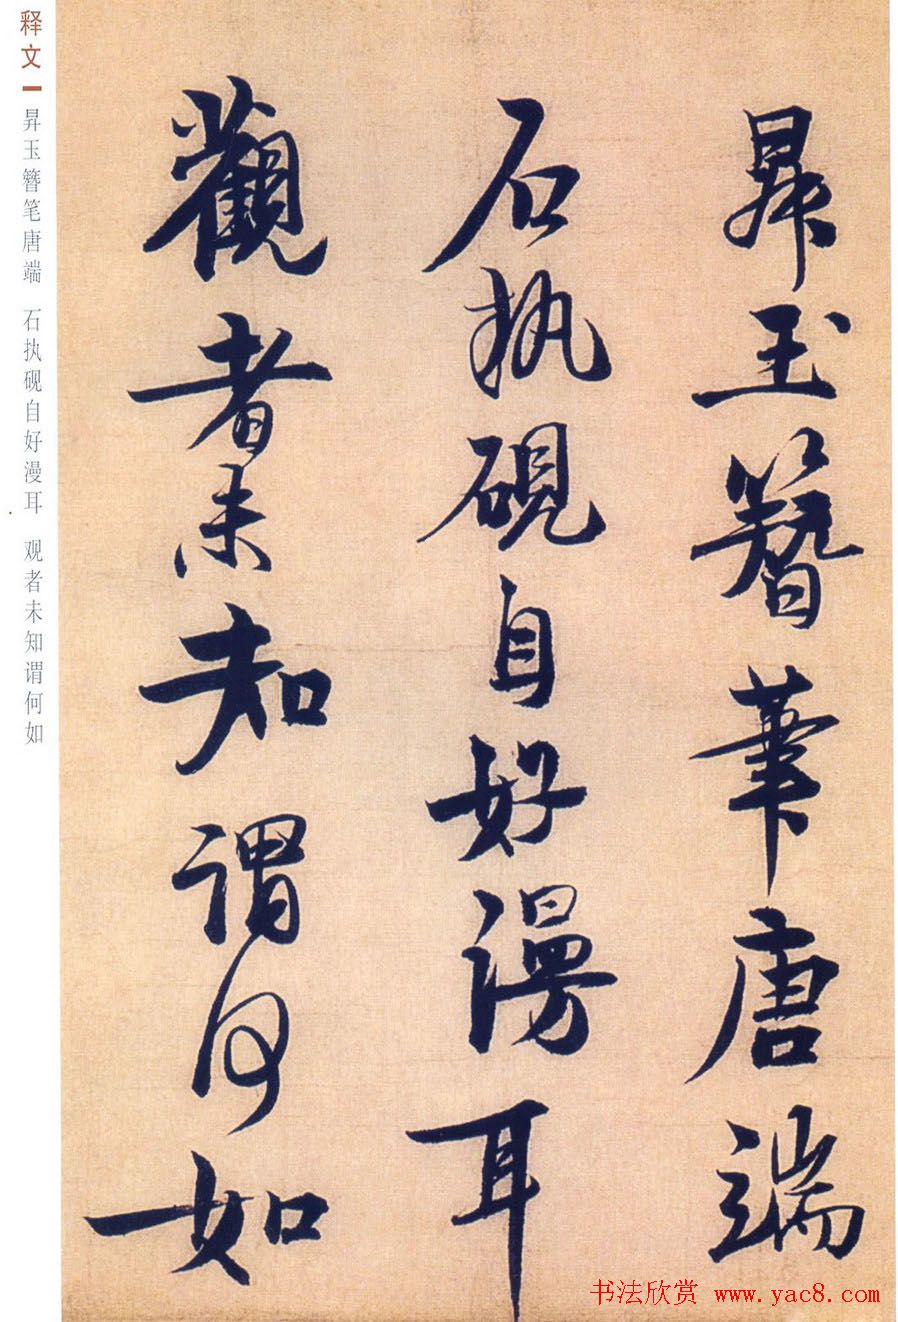 昇玉簪筆唐端
石執硯自好漫耳
觀者未知謂何如
释文
昇玉簪笔唐端 石执砚自好漫耳 观者未知谓何如
书法欣赏 www.yac8.com